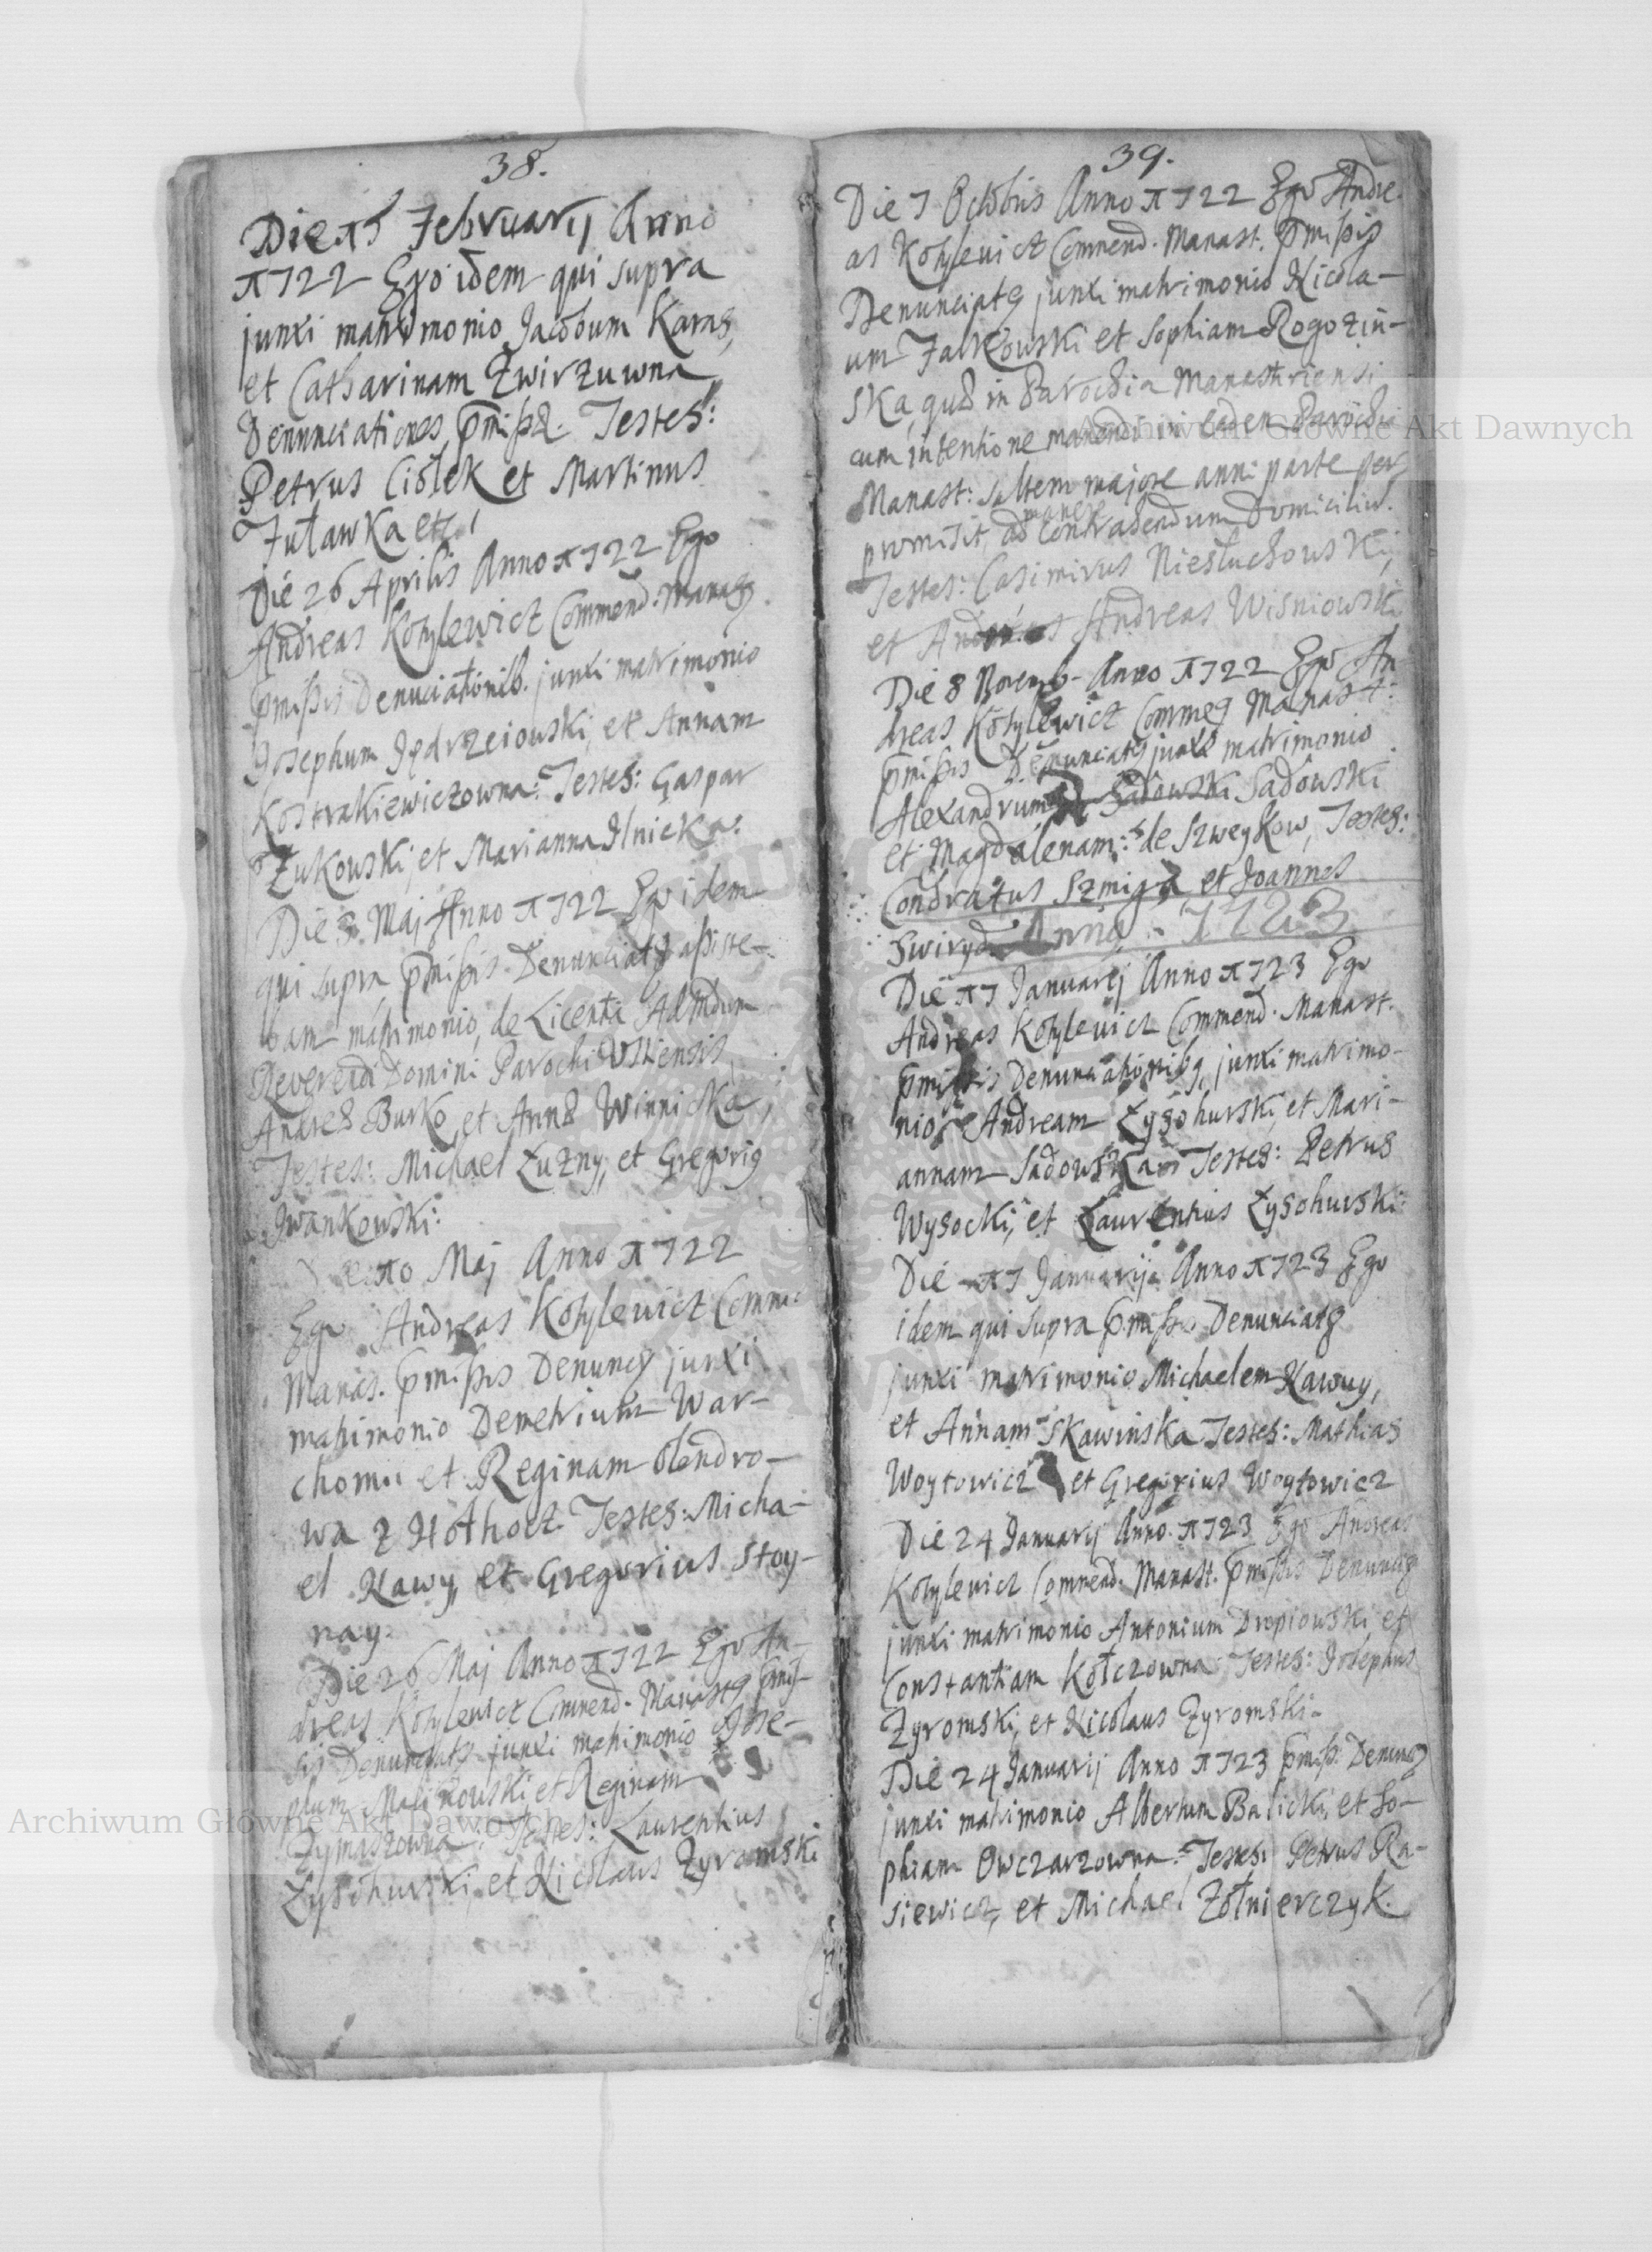 38.
Die 15 Februarij Anno
1722 Ego idem qui supra
junxi matrimonio Jacobum Karas,
et Catharinam Zwirzuwna,
Denunciationes pmiss. Testes:
Petrus Ciołek et Martinus
Jutawka etc.
Die 26 Aprilis Anno 1722 Ego
Andreas Kotylewicz Commend: Manas
pmissis Denuciationib. junxi matrimonio
Josephum Jędrzeiowski, et Annam
Kostrakiewiczowna: Testes: Gaspar
Żukowski, et Marianna Ilnicka.
Die 3 Maj Anno 1722 Ego idem
qui supra pmissis Denunciat assiste-
bam matrimonio, de Licentia Admdum
Reverendi Domini Parochi Usliensis
Andreæ Burko, et Annæ Winnicka,
Testes: Michael Łuzny, et Gregorig
Jwankowski:
Die 10 Maj Anno 1722
Ego Andreas Kotylewicz Comm:
Manas. pmissis Denuncy junxi
matrimonio Demetrium War-
chomu et Reginam Olendro-
wa z Hothoct Testes: Micha-
el Kawy, et Gregorius Stoy-
nay.
Die 26 Maj Anno 1722 Ego An-
dreas Kotylewicz Commend. Manast pmis-
sis Denunciat junxi matrimonio Jose-
phum Malinowski et Reginam
Zymaszowna. Testes: Laurentius
Łysohurski, et Nicolaus Zyromski
39.
Die 7 Octobris Anno 1722 Ego Andre-
as Kotylewicz Commend. Manast. pmissis
Denunciat junxi matrimonio Nicola-
um Falkowski et Sophiam Rogoziń-
ska, quæ in Parochia Manastriensi
cum intentione manendi in eadem Parochia
Manast: saltem majore anni parte per
manere
promisit, ad contrahendum Domiciliu.
Testes: Casimirus Niesłuchowski,
et Andreas Andreas Wisniowski
Die 8 Novemb- Anno 1722 Ego An
dreas Kotylewicz Commeg Manast:
pmissis Denunciat junxi matrimonio
Alexandrum Sadowski Sadowski
et Magdalenam: de Szweykow, Testes:
Condratus Szmiga et Joannes
Swiryd Anno 1723
Die 17 Januarij Anno 1723 Ego
Andreas Kotylewicz Commend. Manast.
pmissis Denunciationibg, junxi matrimo-
nio Andream Łysohurski, et Mari-
annam Sadowska Testes: Petrus
Wysocki, et Laurentius Łysohurski:
Die 17 Januarij Anno 1723 Ego
idem qui supra pmissis Denunciat
junxi matrimonio Michaelem Kawuy,
et Annam Skawinska Testes: Mathias
Woytowicz et Gregorius Woytowicz
Die 24 Januarij Anno 1723 Ego Andreas
Kotylewicz Commend. Manast. pmissis Denuncig
junxi matrimonio Antonium Dropiowski et
Constantiam Kotczowna Testes: Josephus
Zyromski, et Nicolaus Zyromski-
Die 24 Januarij Anno 1723 pmiss. Denung
junxi matrimonio Albertum Balicki, et So-
phiam Owczarzowna: Testes: Petrus Ra-
siewicz, et Michael Żołnierczyk.
Archiwum Główne Akt Dawnych
Archiwum Główne Akt Dawnych